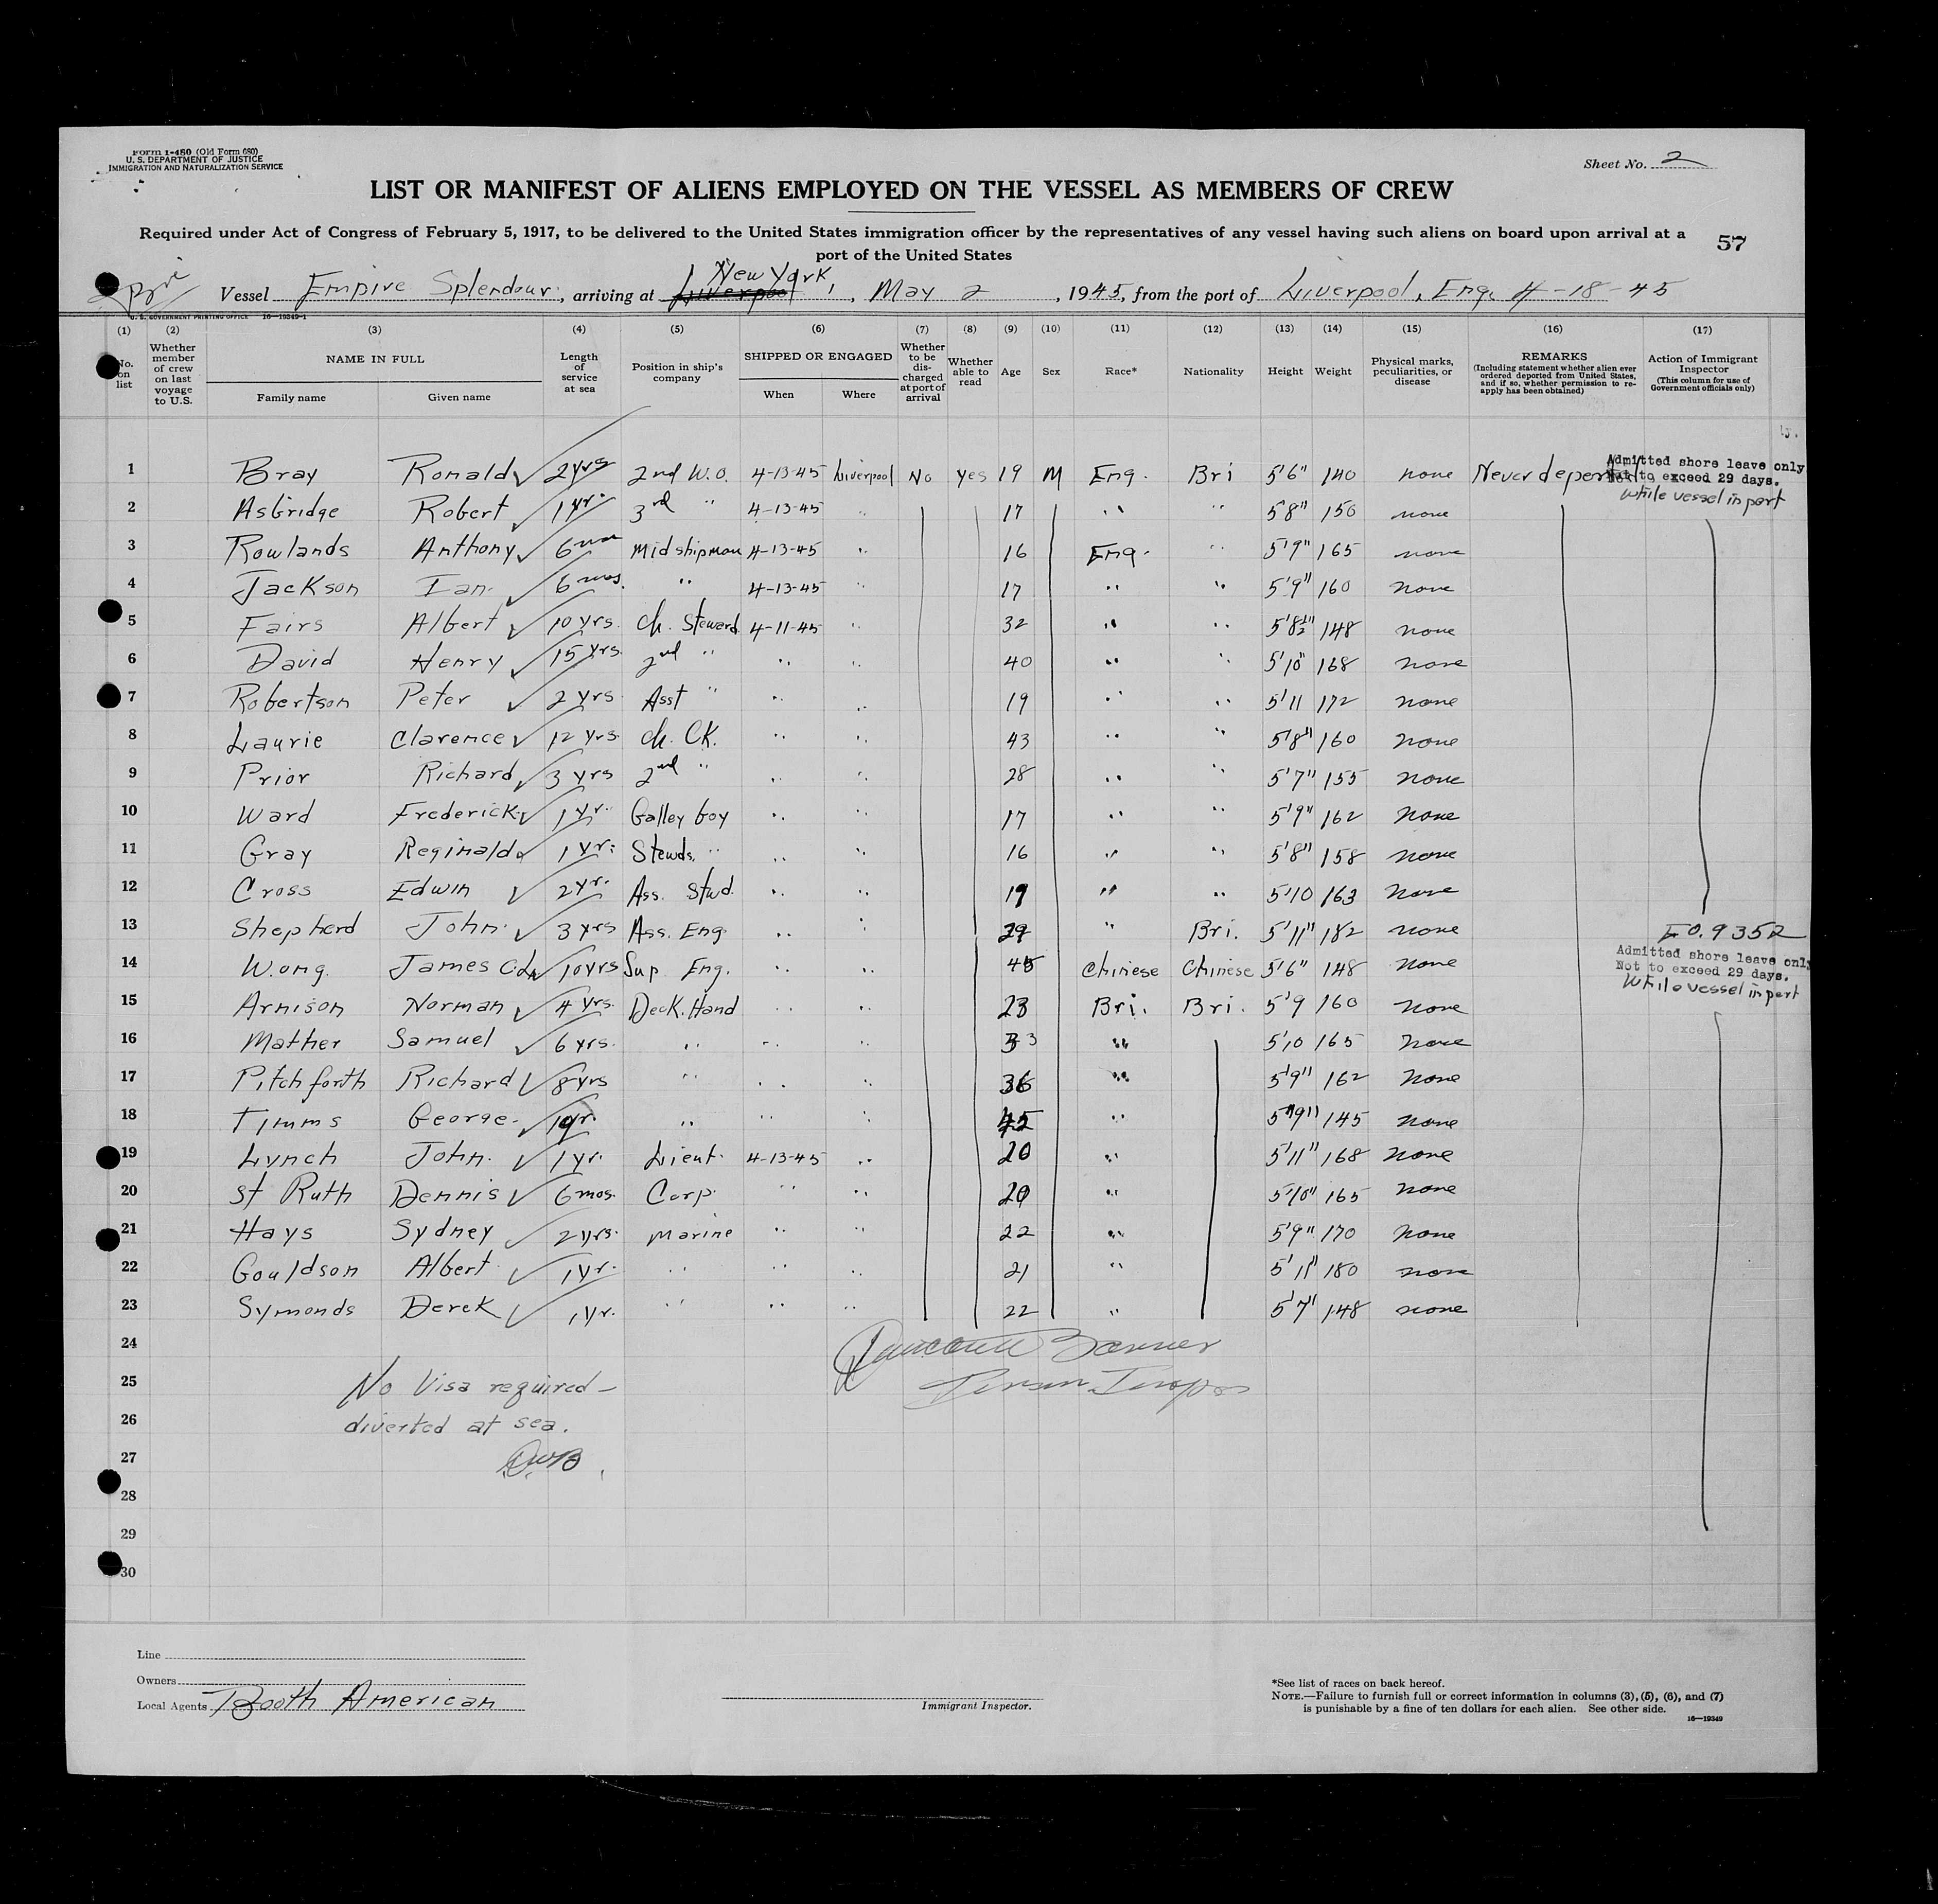 Form I-480 (Old Form 680)
U. S. DEPARTMENT OF JUSTICE
IMMIGRATION AND NATURALIZATION SERVICE
Sheet No. 2
LIST OR MANIFEST OF ALIENS EMPLOYED ON THE VESSEL AS MEMBERS OF CREW
Required under Act of Congress of February 5, 1917, to be delivered to the United States immigration officer by the representatives of any vessel having such aliens on board upon arrival at a
port of the United States
57
Vessel Empire Splendour, arriving at Liverpool New York, May 2, 1945, from the port of Liverpool, Eng. 4-18-45
U. S. GOVERNMENT PRINTING OFFICE 16—19349-1
(1) (2) (3) (4) (5) (6) (7) (8) (9) (10) (11) (12) (13) (14) (15) (16) (17)
No. on list
Whether member of crew on last voyage to U.S.
NAME IN FULL
Family name Given name
Length of service at sea
Position in ship's company
SHIPPED OR ENGAGED
When Where
Whether to be discharged at port of arrival
Whether able to read
Age Sex Race* Nationality Height Weight
Physical marks, peculiarities, or disease
REMARKS
(Including statement whether alien ever ordered deported from United States, and if so, whether permission to re-apply has been obtained)
Action of Immigrant Inspector
(This column for use of Government officials only)
1 Bray Ronald 2 yrs 2nd W.O. 4-13-45 Liverpool No Yes 19 M Eng. Bri 5'6" 140 none Never deported
Admitted shore leave only
Not to exceed 29 days.
while vessel in port
2 Asbridge Robert 1 yr. 3rd " 4-13-45 " 17 " " 5'8" 150 none
3 Rowlands Anthony 6 mos Midshipman 4-13-45 " 16 Eng. " 5'9" 165 none
4 Jackson Ian 6 mos. " 4-13-45 " 17 " " 5'9" 160 none
5 Fairs Albert 10 yrs. Ch. Steward 4-11-45 " 32 " " 5'8½" 148 none
6 David Henry 15 yrs. 2nd " " " 40 " " 5'10" 168 none
7 Robertson Peter 2 yrs. Asst " " " 19 " " 5'11 172 none
8 Laurie Clarence 12 yrs. Ch. CK. " " 43 " " 5'8" 160 none
9 Prior Richard 3 yrs 2nd " " " 28 " " 5'7" 155 none
10 Ward Frederick 1 yr. Galley boy " " 17 " " 5'9" 162 none
11 Gray Reginald 1 yr. Stewds. " " " 16 " " 5'8" 158 none
12 Cross Edwin 2 yr. Ass. Stwd. " " 19 " " 5'10 163 none
13 Shepherd John 3 yrs Ass. Eng. " " 29 " Bri. 5'11" 182 none
E0.9352
14 Wong. James 10 yrs Sup Eng. " " 45 Chinese Chinese 5'6" 148 none
Admitted shore leave only
Not to exceed 29 days.
While vessel in port
15 Arnison Norman 4 yrs. Deck. Hand " " 23 Bri. Bri. 5'9 160 none
16 Mather Samuel 6 yrs. " " " 33 " 5'10 165 none
17 Pitchforth Richard 8 yrs " " " 36 " 5'9" 162 none
18 Timms George 1 yr. " " " 45 " 5'9" 145 none
19 Lynch John. 1 yr. Lieut. 4-13-45 " 20 " 5'11" 168 none
20 St Ruth Dennis 6 mos. Corp. " " 20 " 5'10" 165 none
21 Hays Sydney 2 yrs. Marine " " 22 " 5'9" 170 none
22 Gouldson Albert 1 yr. " " " 21 " 5'11" 180 none
23 Symonds Derek 1 yr. " " " 22 " 5'7" 148 none
24
25 No Visa required—
26 diverted at sea.
27
28
29
30
Line
Owners
Local Agents Booth American
Immigrant Inspector.
*See list of races on back hereof.
NOTE.—Failure to furnish full or correct information in columns (3), (5), (6), and (7)
is punishable by a fine of ten dollars for each alien. See other side.
16—19349